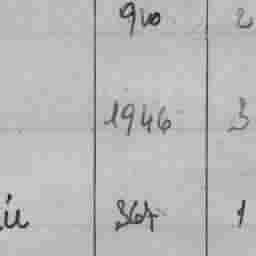 910 2
1946 3
ü 367 1